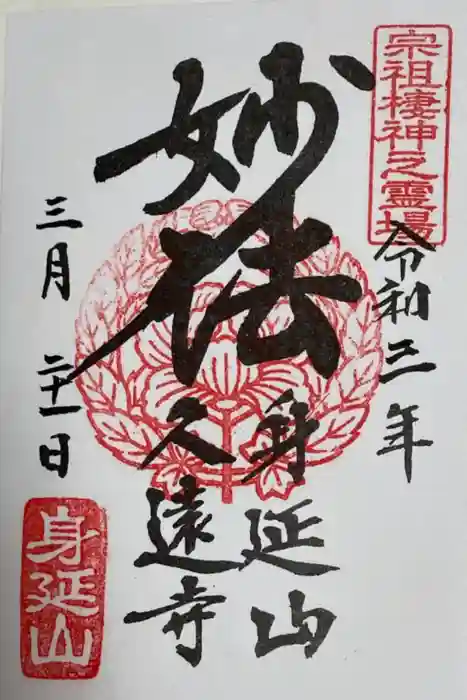 宗祖棲神之霊場
令和三年
妙法
身延山
久遠寺
三月二十一日
身延山